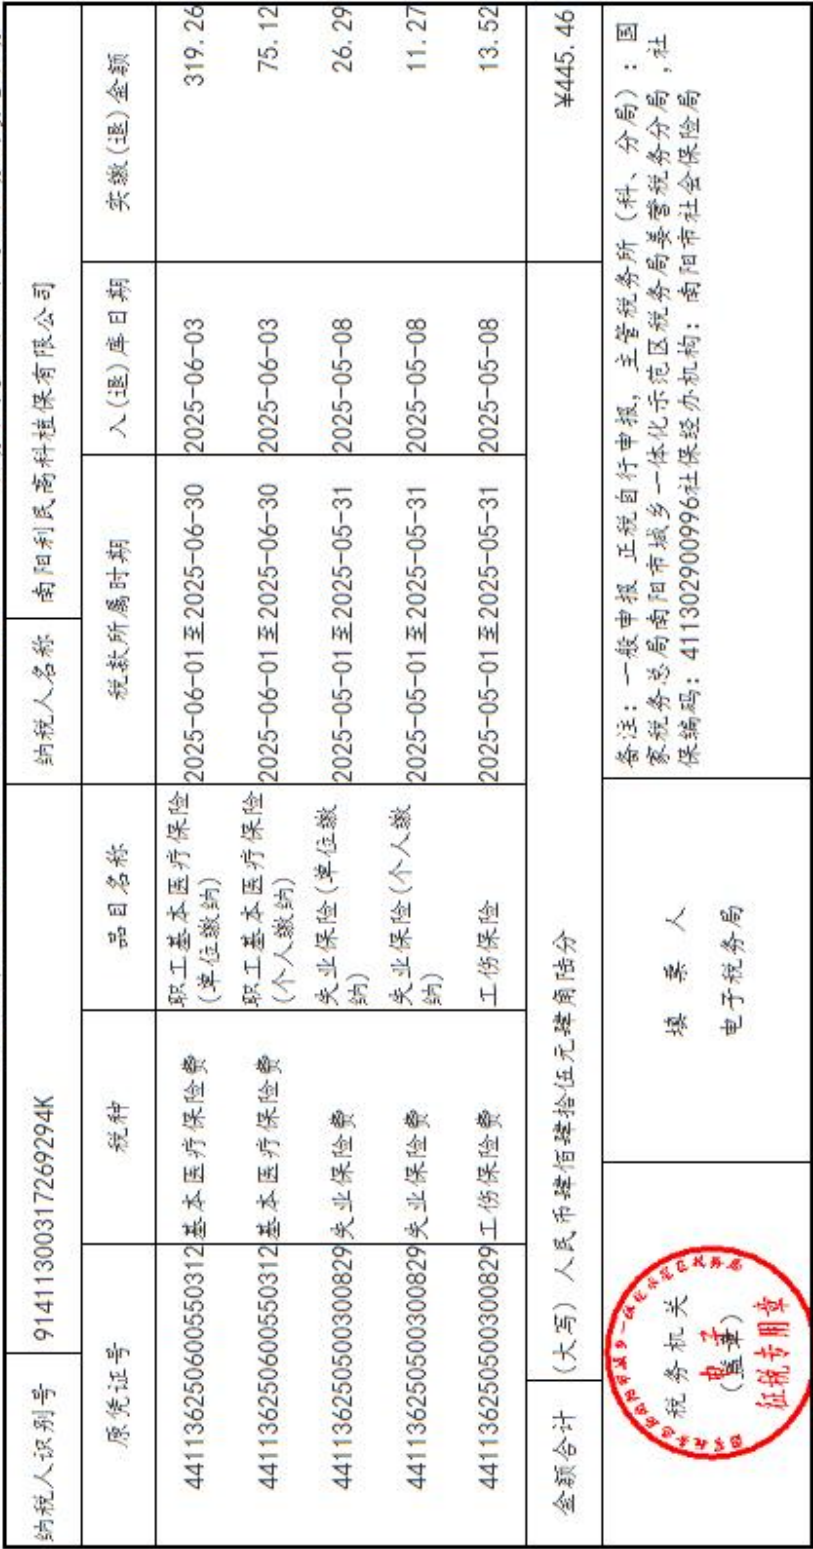 纳税人识别号 91411300317269294K 纳税人名称 南阳利民高科植保有限公司
原凭证号 税种 品目名称 税款所属时期 入(退)库日期 实缴(退)金额
441136250600550312 基本医疗保险费 职工基本医疗保险 2025-06-01至2025-06-30 2025-06-03 319.26
(单位缴纳)
441136250600550312 基本医疗保险费 职工基本医疗保险 2025-06-01至2025-06-30 2025-06-03 75.12
(个人缴纳)
441136250500300829 失业保险费 失业保险(单位缴 2025-05-01至2025-05-31 2025-05-08 26.29
纳)
441136250500300829 失业保险费 失业保险(个人缴 2025-05-01至2025-05-31 2025-05-08 11.27
纳)
441136250500300829 工伤保险费 工伤保险 2025-05-01至2025-05-31 2025-05-08 13.52
金额合计 (大写) 人民币肆佰肆拾伍元肆角陆分 ¥445.46
税务机关
(盖章)
国家税务总局南阳市城乡一体化示范区税务局
电子
征税专用章
填票人
电子税务局
备注:一般申报 正税自行申报, 主管税务所(科、分局):国
家税务总局南阳市城乡一体化示范区税务局姜营税务分局,社
保编码:411302900996社保经办机构:南阳市社会保险局